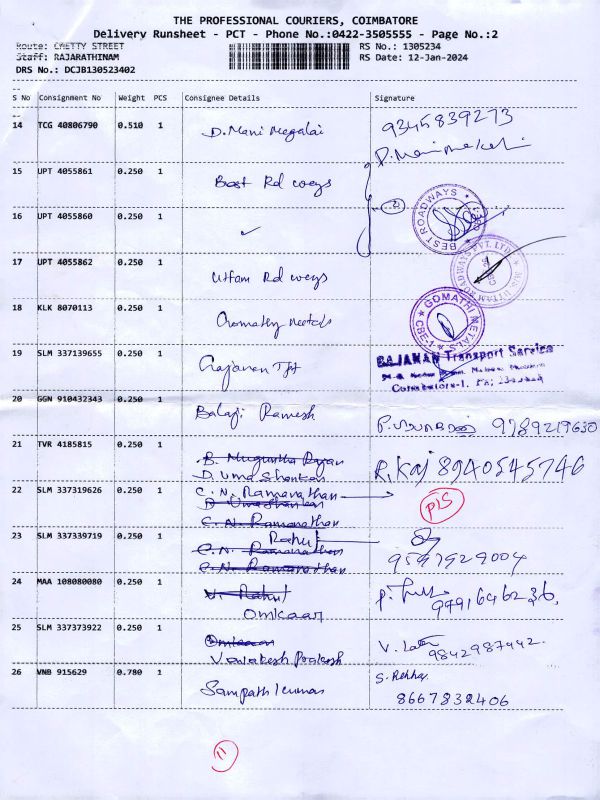 THE PROFESSIONAL COURIERS, COIMBATORE
Delivery Runsheet - PCT - Phone No.:0422-3505555 - Page No.:2
Route: CHETTY STREET RS No.: 1305234
Staff: RAJARATHINAM RS Date: 12-Jan-2024
DRS No.: DCJB130523402
S No Consignment No Weight PCS Consignee Details Signature
14 TCG 40806790 0.510 1 D. Mani Megalai 9345839273
15 UPT 4055861 0.250 1 Best Rd ways
16 UPT 4055860 0.250 1 ✓ (2) BEST ROADWAYS
17 UPT 4055862 0.250 1 Uttam Rd ways
18 KLK 8070113 0.250 1 Gomathy metals GOMATHI METALS CBE-1
19 SLM 337139655 0.250 1 Gajanan Tpt GAJANAN Transport Service
Coimbatore-1.
20 GGN 910432343 0.250 1 Balaji Ramesh 9789219630
21 TVR 4185815 0.250 1 D. Uma Shankar R. Raj 8940545746
22 SLM 337319626 0.250 1 C. N. Ramanathan
23 SLM 337339719 0.250 1 Rahul
24 MAA 108080080 0.250 1 Omkaar
25 SLM 337373922 0.250 1 Venkatesh Prakash V. Latha 9842987442
26 VNB 915629 0.780 1 Sampath kumar S. Rekha
8667832406
11